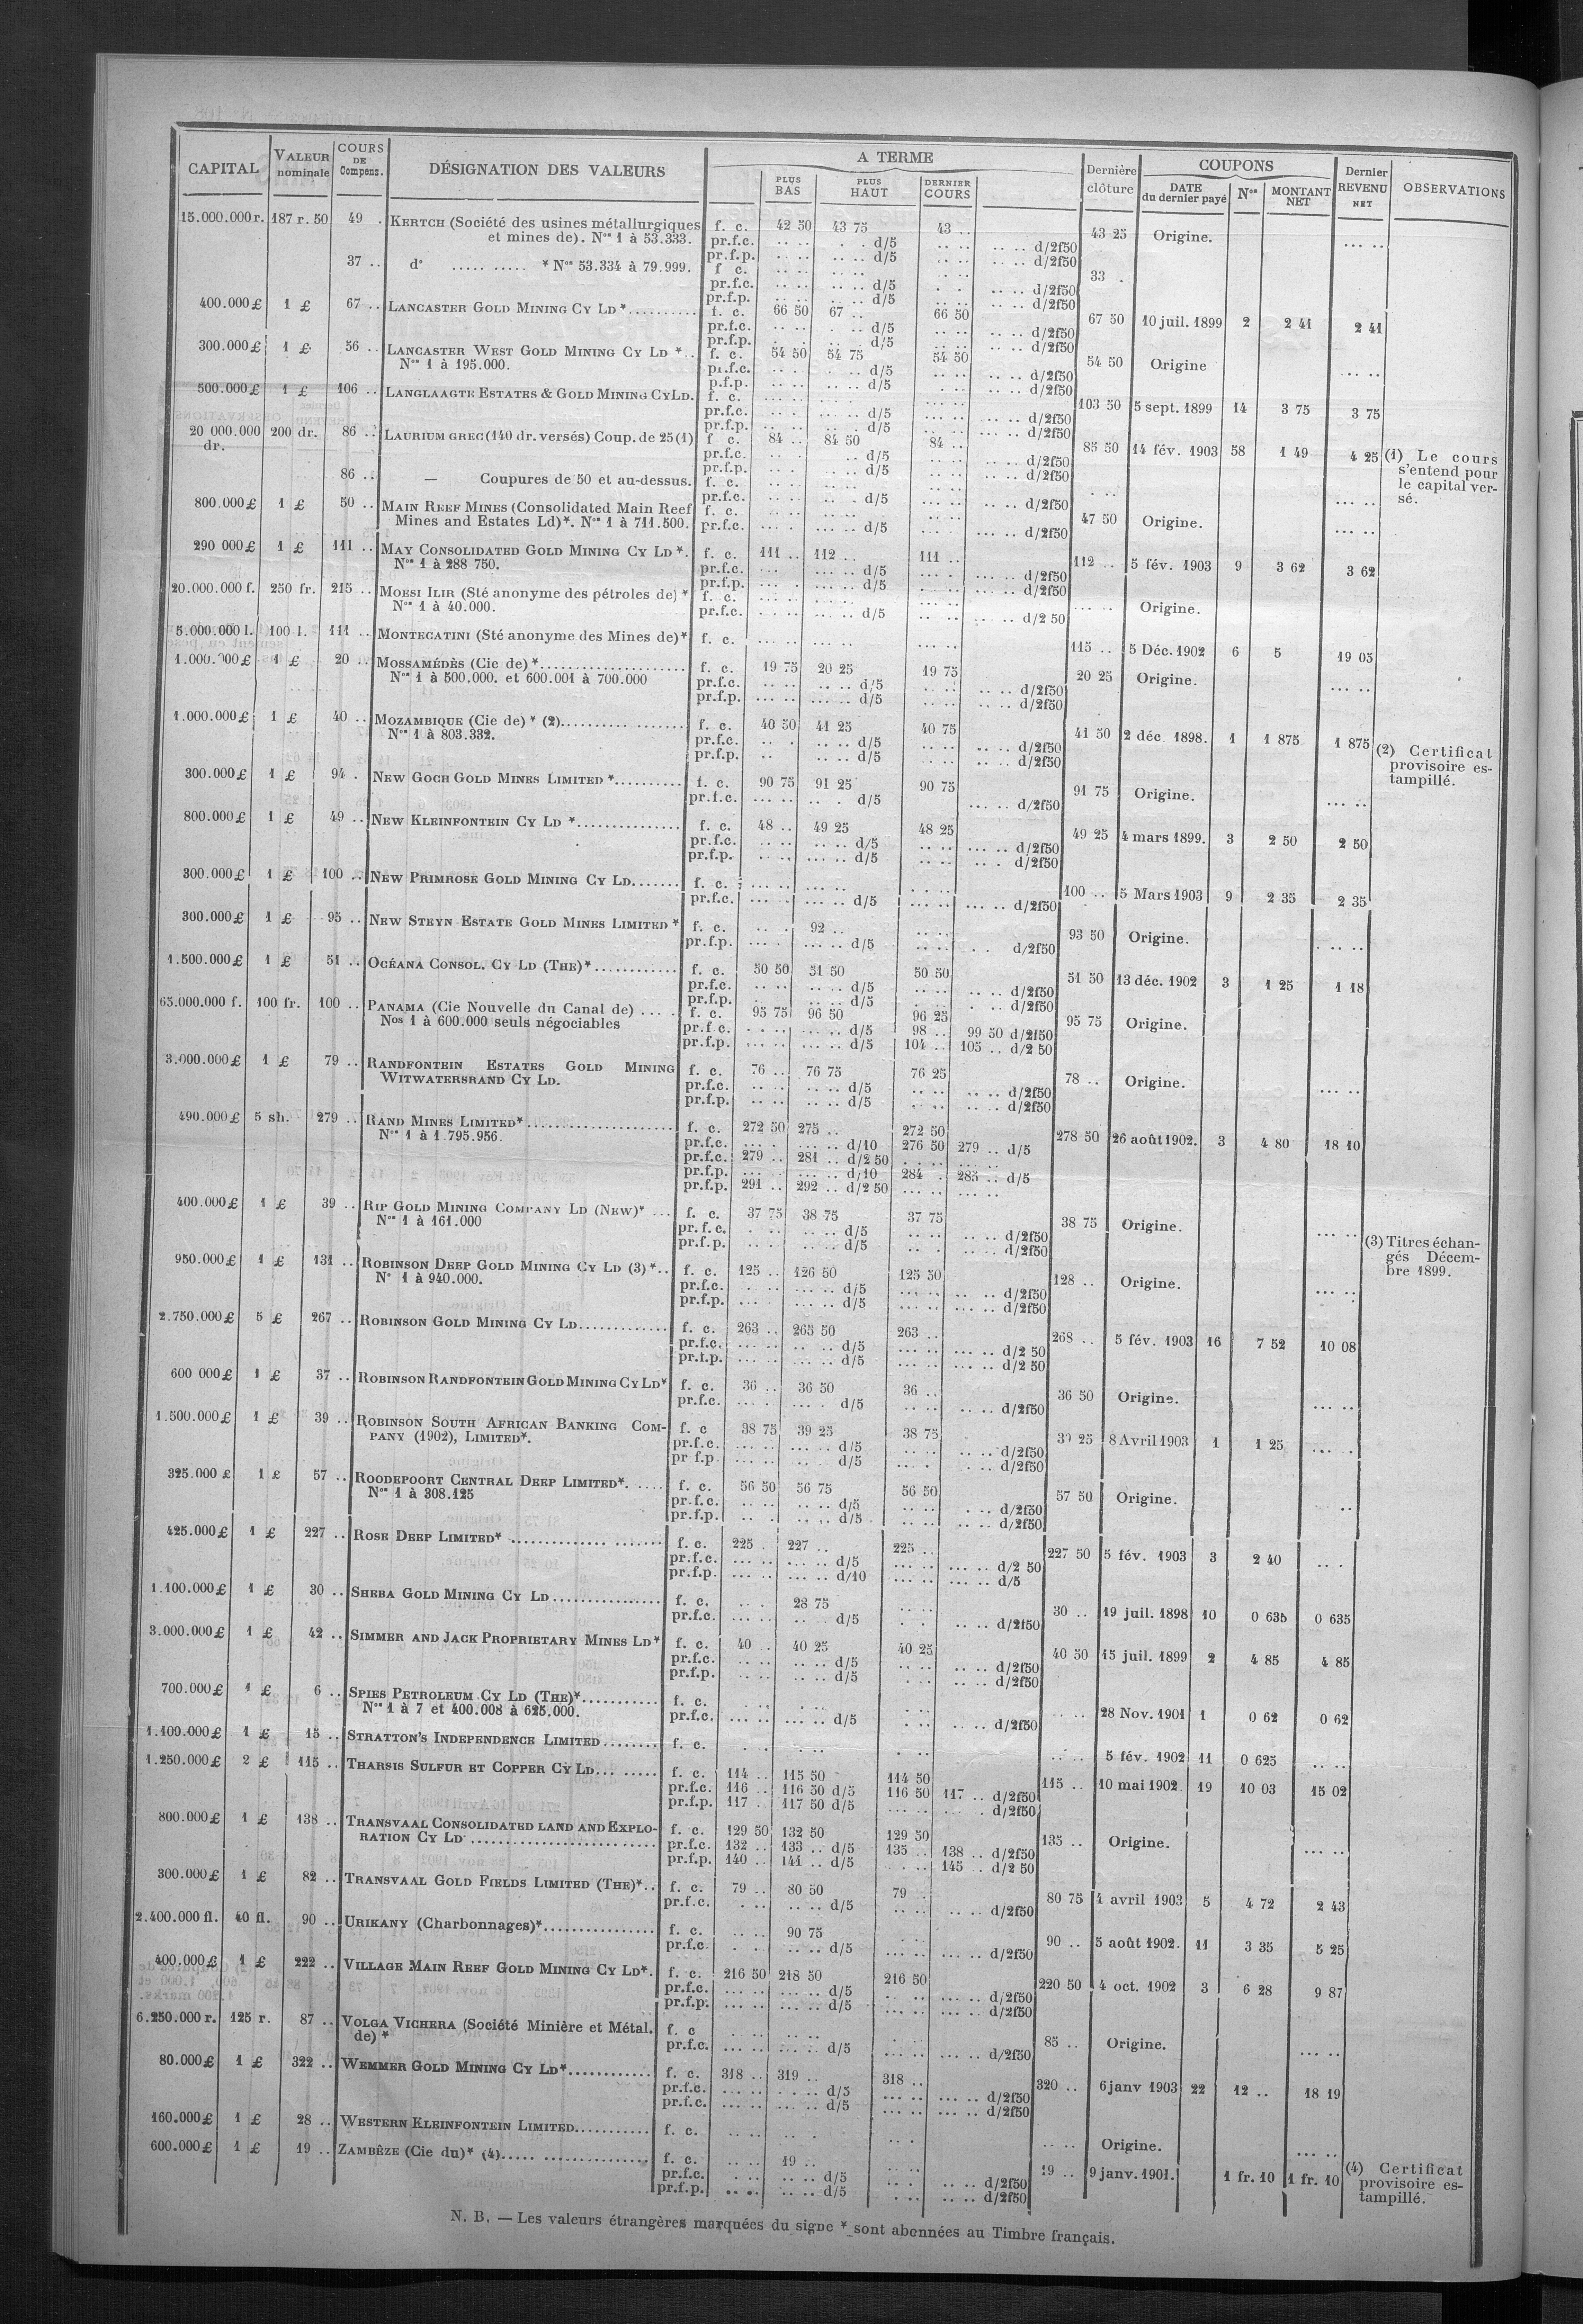 CAPITAL | VALEUR nominale | COURS DE Compens. | DÉSIGNATION DES VALEURS | A TERME | Dernière clôture | COUPONS | Dernier REVENU NET | OBSERVATIONS
PLUS BAS | PLUS HAUT | DERNIER COURS | DATE du dernier payé | Nos | MONTANT NET
15.000.000 r. 187 r. 50 49 . KERTCH (Société des usines métallurgiques f. c. 42 50 43 75 43 .. 43 25 Origine. ... ..
et mines de). Nos 1 à 53.333. pr.f.c. .. .. . . d/5 .. .. .. .. d/2f50
pr.f.p. .. .. .. .. d/5 .. .. .. .. d/2f50
37 .. do ..... ..... * Nos 53.334 à 79.999. f c. .. .. .. .. .. .. 33 .
pr.f.c. .. .. .. .. d/5 . . .. .. d/2f50
pr.f.p. .. .. .. .. d/5 .. .. .. .. d/2f50
400.000 £ 1 £ 67 .. LANCASTER GOLD MINING CY LD *.......... f. c. 66 50 67 .. 66 50 67 50 10 juil. 1899 2 2 41 2 41
pr.f.c. .. .. . .. d/5 .. .. .. .. d/2f50
pr.f.p. . . .. .. d/5 .. .. .. .. d/2f50
300.000 £ 1 £ 56 .. LANCASTER WEST GOLD MINING CY LD *.. f. c. 54 50 54 75 54 50 54 50 Origine ... ..
Nos 1 à 195.000. pr.f.c. .. . . .. d/5 .. .. .. .. d/2f50
p.f.p. .. .. .. .. d/5 .. .. .. .. d/2f50
500.000 £ 1 £ 106 .. LANGLAAGTE ESTATES & GOLD MINING CY LD. f. c. 103 50 5 sept. 1899 14 3 75 3 75
pr.f.c. .. .. ... .. d/5 ... .. ... .. d/2f50
pr.f.p. .. .. .. .. d/5 ... .. ... .. d/2f50
20 000.000 dr. 200 dr. 86 .. LAURIUM GREC (140 dr. versés) Coup. de 25 (1) f c. 84 .. 84 50 84 .. 85 50 14 fév. 1903 58 1 49 4 25 (1) Le cours
pr.f.c. .. .. .. d/5 .. .. .. .. d/2f50 s'entend pour
pr.f.p. .. .. .. .. d/5 .. .. .. .. d/2f50 le capital ver-
86 .. — Coupures de 50 et au-dessus. f. c. .. .. .. .. .. .. . .. ... .. sé.
pr.f.c. .. .. .. . d/5 ... .. .. .. d/2f50
800.000 £ 1 £ 50 .. MAIN REEF MINES (Consolidated Main Reef f. c. .. .. .. .. .. .. 47 50 Origine. ... ..
Mines and Estates Ld)*. Nos 1 à 711.500. pr.f.c. ... . ... .. d/5 .. .. ... .. d/2f50
290 000 £ 1 £ 111 .. MAY CONSOLIDATED GOLD MINING CY LD *. f. c. 111 .. 112 .. 111 .. 112 .. 5 fév. 1903 9 3 62 3 62
Nos 1 à 288 750. pr.f.c. ... ... .. d/5 ... . ... .. d/2f50
pr.f.p. ... . ... .. d/5 ... .. ... .. d/2f50
20.000.000 f. 250 fr. 215 .. MOESI ILIR (Sté anonyme des pétroles de) * f. c. .. .. .. .. ... .. ... .. Origine.
Nos 1 à 40.000. pr.f.c. .. .. ... .. d/5 .. .. ... .. d/2 50
5.000.000 l. 100 l. 111 .. MONTECATINI (Sté anonyme des Mines de)* f. c. ... .. ... .. ... .. 115 .. 5 Déc. 1902 6 5 19 05
1.000.000 £ 1 £ 20 .. MOSSAMÉDÈS (Cie de) *.................... f. c. 19 75 20 25 19 75 20 25 Origine. ... ..
Nos 1 à 500.000. et 600.001 à 700.000 pr.f.c. .. .. .. .. d/5 .. .. .. .. d/2f50
pr.f.p. ... .. ... .. d/5 .. .. .. .. d/2f50
1.000.000 £ 1 £ 40 .. MOZAMBIQUE (Cie de) * (2)................. f. c. 40 50 41 25 40 75 41 50 2 déc. 1898. 1 1 875 1 875 (2) Certificat
Nos 1 à 803.332. pr.f.c. .. . .. .. d/5 .. .. .. .. d/2f50 provisoire es-
pr.f.p. .. .. .. .. d/5 .. .. .. .. d/2f50 tampillé.
300.000 £ 1 £ 94 . NEW GOCH GOLD MINES LIMITED *.......... f. c. 90 75 91 25 90 75 91 75 Origine. ... ..
pr.f.c. ... .. .. . d/5 ... .. d/2f50
800.000 £ 1 £ 49 .. NEW KLEINFONTEIN CY LD *............... f. c. 48 .. 49 25 48 25 49 25 4 mars 1899. 3 2 50 2 50
pr.f.c. .. .. .. .. d/5 .. .. ... .. d/2f50
pr.f.p. .. .. ... .. d/5 .. .. .. . d/2f50
300.000 £ 1 £ 100 .. NEW PRIMROSE GOLD MINING CY LD....... f. c. ... .. ... .. . . .. 100 .. 5 Mars 1903 9 2 35 2 35
pr.f.c. ... .. ... .. d/5 ... .. ... .. d/2f50
300.000 £ 1 £ 95 .. NEW STEYN ESTATE GOLD MINES LIMITED * f. c. .. . 92 .. .. .. 93 50 Origine. . .. ..
pr.f.p. ... . ... .. d/5 .. .. . . d/2f50
1.500.000 £ 1 £ 51 .. OCÉANA CONSOL. CY LD (THE)*............ f. c. 50 50 51 50 50 50 51 50 13 déc. 1902 3 1 25 1 18
pr.f.c. .. .. .. .. d/5 .. .. .. .. d/2f50
pr.f.p. . ... .. d/5 . .. . .. d/2f50
65.000.000 f. 100 fr. 100 .. PANAMA (Cie Nouvelle du Canal de) .... . f. c. 95 75 96 50 96 25 95 75 Origine.
Nos 1 à 600.000 seuls négociables pr.f.c. . . .. ... .. d/5 98 .. 99 50 d/2f50
pr.f.p. ... .. ... .. d/5 104 .. 105 .. d/2 50
3.000.000 £ 1 £ 79 .. RANDFONTEIN ESTATES GOLD MINING f. c. 76 .. 76 75 76 25 78 .. Origine. ... ..
WITWATERSRAND CY LD. pr.f.c. .. .. .. .. d/5 .. .. .. .. d/2f50
pr.f.p. .. .. .. .. d/5 . .. .. .. d/2f50
490.000 £ 5 sh. 279 .. RAND MINES LIMITED*..................... f. c. 272 50 275 .. 272 50 278 50 26 août 1902. 3 4 80 18 10
Nos 1 à 1.795.956. pr.f.c. ... . ... .. d/10 276 50 279 .. d/5
pr.f.c. 279 .. 281 .. d/2 50 . .. .. ... ..
pr.f.p. ... .. ... .. d/10 284 . 285 .. d/5
pr.f.p. 291 .. 292 .. d/2 50 ... .. ... ..
400.000 £ 1 £ 39 .. RIP GOLD MINING COMPANY LD (NEW)* ... f. c. 37 75 38 75 37 75 38 75 Origine. ... ..
Nos 1 à 161.000 pr.f.c. . .. .. .. d/5 .. .. .. .. d/2f50 (3) Titres échan-
pr.f.p. .. . .. .. d/5 .. . .. .. d/2f50 gés Décem-
950.000 £ 1 £ 131 .. ROBINSON DEEP GOLD MINING CY LD (3) *.. f. c. 125 .. 126 50 125 50 128 .. Origine. ... .. bre 1899.
No 1 à 940.000. pr.f.c. . .. ... .. d/5 ... .. ... .. d/2f50
pr.f.p. ... . ... .. d/5 ... .. ... .. d/2f50
2.750.000 £ 5 £ 267 .. ROBINSON GOLD MINING CY LD............. f. c. 263 .. 265 50 263 .. 268 .. 5 fév. 1903 16 7 52 10 08
pr.f.c. ... .. .. .. d/5 ... .. ... .. d/2 50
pr.f.p. ... .. ... .. d/5 ... .. ... .. d/2 50
600 000 £ 1 £ 37 .. ROBINSON RANDFONTEIN GOLD MINING CY LD* f. c. 36 .. 36 50 36 .. 36 50 Origine. ... ..
pr.f.c. ... . ... . d/5 .. .. .. .. d/2f50
1.500.000 £ 1 £ 39 .. ROBINSON SOUTH AFRICAN BANKING COM- f. c 38 75 39 25 38 75 39 25 8 Avril 1903 1 1 25 ... ..
PANY (1902), LIMITED*. pr.f.c. ... .. ... .. d/5 .. .. .. .. d/2f50
pr f.p. ... .. .. .. d/5 .. . . .. d/2f50
325.000 £ 1 £ 57 .. ROODEPOORT CENTRAL DEEP LIMITED*. ..... f. c. 56 50 56 75 56 50 57 50 Origine. ..
Nos 1 à 308.125 pr.f.c. .. .. .. .. d/5 .. .. . .. d/2f50
pr.f.p. .. . .. .. d/5 .. .. .. .. d/2f50
425.000 £ 1 £ 227 .. ROSE DEEP LIMITED* .............. ....... f. c. 225 . 227 .. 225 .. 227 50 5 fév. 1903 3 2 40 .. .
pr.f.c. ... .. ... .. d/5 ... .. ... .. d/2 50
pr.f.p. ... .. ... .. d/10 ... .. ... .. d/5
1.100.000 £ 1 £ 30 .. SHEBA GOLD MINING CY LD................ f. c. .. . 28 75 .. .. 30 .. 19 juil. 1898 10 0 635 0 635
pr.f.c. ... .. .. .. d/5 . . .. .. d/2f50
3.000.000 £ 1 £ 42 .. SIMMER AND JACK PROPRIETARY MINES LD* f. c. 40 .. 40 25 40 25 40 50 15 juil. 1899 2 4 85 4 85
pr.f.c. .. .. .. .. d/5 .. .. .. .. d/2f50
pr.f.p. .. .. .. .. d/5 . .. .. .. d/2f50
700.000 £ 1 £ 6 .. SPIES PETROLEUM CY LD (THE)*........... f. c. . .. .. .. .. .. 28 Nov. 1901 1 0 62 0 62
Nos 1 à 7 et 400.008 à 625.000. pr.f.c. ... .. ... .. d/5 . .. .. .. d/2f50
1.100.000 £ 1 £ 15 .. STRATTON'S INDEPENDENCE LIMITED........ f. c. . . . .. . .. .. .. 5 fév. 1902 11 0 625 .. ..
1.250.000 £ 2 £ 115 .. THARSIS SULFUR ET COPPER CY LD... ..... f. c. 114 .. 115 50 114 50 115 .. 10 mai 1902 19 10 03 15 02
pr.f.c. 116 .. 116 50 d/5 116 50 117 .. d/2f50
pr.f.p. 117 . 117 50 d/5 ... .. . .. d/2f50
800.000 £ 1 £ 138 .. TRANSVAAL CONSOLIDATED LAND AND EXPLO- f. c. 129 50 132 50 129 50 135 .. Origine. ... ..
RATION CY LD ......................... pr.f.c. 132 .. 133 .. d/5 135 .. 138 .. d/2f50
pr.f.p. 140 .. 141 .. d/5 . .. 145 .. d/2 50
300.000 £ 1 £ 82 .. TRANSVAAL GOLD FIELDS LIMITED (THE)*.. f. c. 79 .. 80 50 79 .. 80 75 4 avril 1903 5 4 72 2 43
pr.f.c. . .. .. .. d/5 .. .. .. .. d/2f50
2.400.000 fl. 40 fl. 90 .. URIKANY (Charbonnages)*................ f. c. .. .. 90 75 . . 90 .. 5 août 1902. 11 3 35 5 25
pr.f.c. . . .. .. d/5 ... .. ... .. d/2f50
400.000 £ 1 £ 222 .. VILLAGE MAIN REEF GOLD MINING CY LD*. f. c. 216 50 218 50 216 50 220 50 4 oct. 1902 3 6 28 9 87
pr.f.c. ... .. ... .. d/5 .. .. ... .. d/2f50
pr.f.p. ... .. ... .. d/5 ... .. ... .. d/2f50
6.250.000 r. 125 r. 87 .. VOLGA VICHERA (Société Minière et Métal. f. c . .. .. .. . . 85 .. Origine. ... ..
de) * pr.f.c. ... .. ... .. d/5 ... .. ... .. d/2f50
80.000 £ 1 £ 322 .. WEMMER GOLD MINING CY LD*............ f. c. 318 .. 319 .. 318 .. 320 .. 6 janv 1903 22 12 .. 18 19
pr.f.c. ... .. . . .. d/5 ... .. ... .. d/2f50
pr.f.c. ... .. ... .. d/5 ... .. ... .. d/2f50
160.000 £ 1 £ 28 .. WESTERN KLEINFONTEIN LIMITED........... f. c. .. .. .. . .. . .. .. Origine. ... ..
600.000 £ 1 £ 19 .. ZAMBÈZE (Cie du)* (4)..... ............... f. c. .. .. 19 .. .. .. 19 .. 9 janv. 1901. 1 fr. 10 1 fr. 10 (4) Certificat
pr.f.c. . .. .. .. d/5 .. . .. .. d/2f50 provisoire es-
pr.f.p. .. .. .. .. d/5 . .. .. .. d/2f50 tampillé.
N. B. — Les valeurs étrangères marquées du signe * sont abonnées au Timbre français.